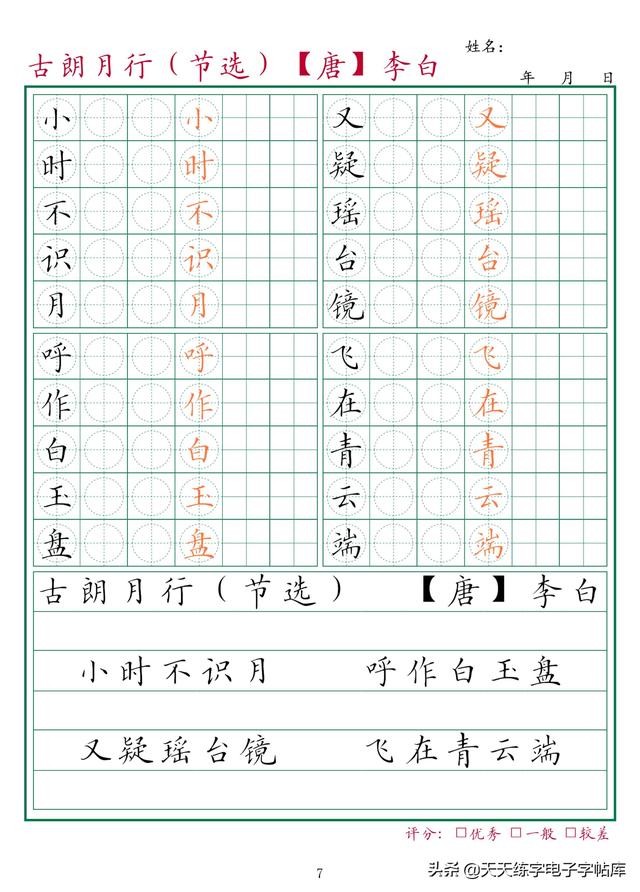 姓名：
古朗月行（节选）【唐】李白
年 月 日
小 小 又 又
时 时 疑 疑
不 不 瑶 瑶
识 识 台 台
月 月 镜 镜
呼 呼 飞 飞
作 作 在 在
白 白 青 青
玉 玉 云 云
盘 盘 端 端
古朗月行（节选） 【唐】李白
小时不识月 呼作白玉盘
又疑瑶台镜 飞在青云端
评分：□优秀 □一般 □较差
7
头条 @天天练字电子字帖库